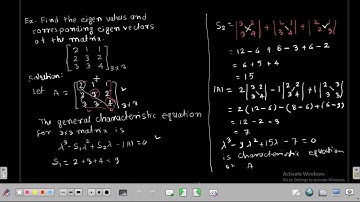 Ex. Find the eigen values and
corresponding eigen vectors
of the matrix.
[2 1 1
2 3 2
3 3 4] 3×3
Solution:
Let A = [2 1 1
2 3 2
3 3 4] 3×3
The general characteristic equation
for 3×3 matrix is
λ³ - S₁λ² + S₂λ - |A| = 0
S₁ = 2+3+4 = 9
S₂ = |3 2
3 4| + |2 1
3 4| + |2 1
2 3|
= 12-6 + 8-3 + 6-2
= 6+5+4
= 15
|A| = 2|3 2
3 4| - 1|2 2
3 4| + 1|2 3
3 3|
= 2(12-6) - (8-6) + (6-9)
= 12-2-3
= 7
λ³ - 9λ² + 15λ - 7 = 0
is characteristic equation
of A
Activate Windows
Go to Settings to activate Windows.